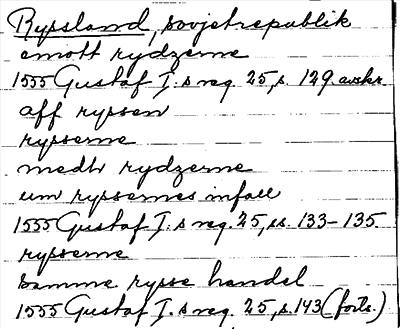 Ryssland, sovjetrepublik
emott rydzerne
1555 Gustaf I:s reg. 25, s. 129 avskr.
aff ryssen
rysserne
medh rydzerne
um ryssernes infall
1555 Gustaf I:s reg. 25, ss. 133-135
rysserne
samme rysse handel
1555 Gustaf I:s reg. 25, s. 143 (forts.)